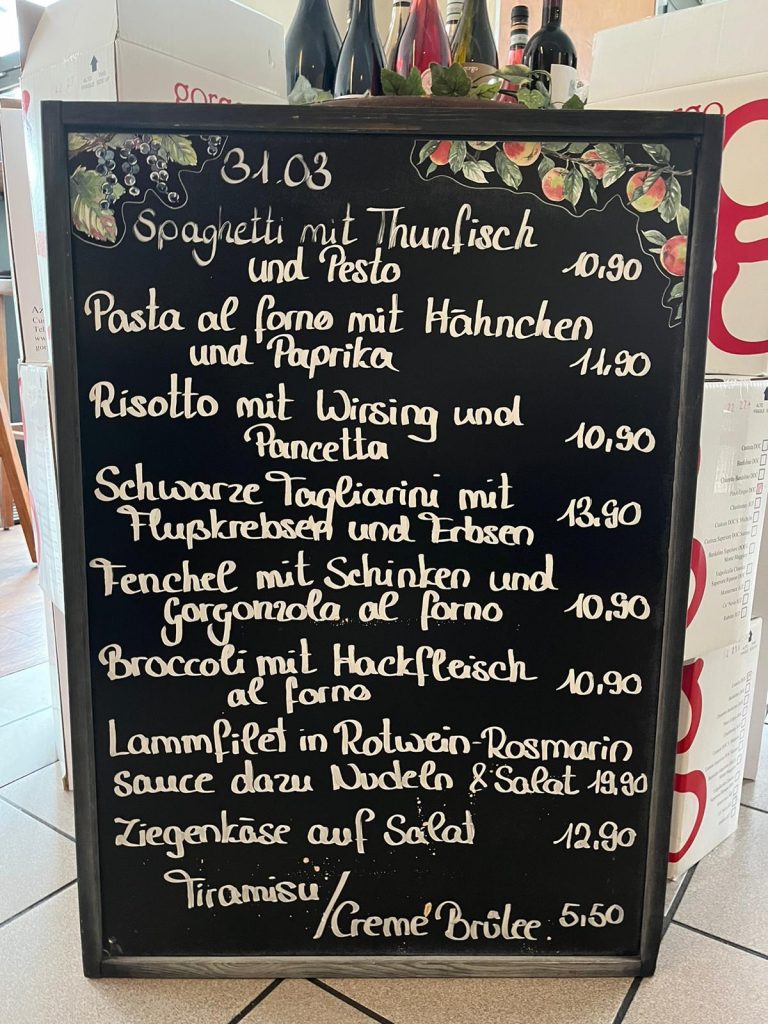 gorgo
31.03
Spaghetti mit Thunfisch
und Pesto 10,90
Pasta al forno mit Hähnchen
und Paprika 11,90
Risotto mit Wirsing und
Pancetta 10,90
Schwarze Tagliarini mit
Flußkrebsen und Erbsen 13.90
Fenchel mit Schinken und
Gorgonzola al forno 10,90
Broccoli mit Hackfleisch
al forno 10,90
Lammfilet in Rotwein-Rosmarin
sauce dazu Nudeln & Salat 19,90
Ziegenkäse auf Salat 12,90
Tiramisu/
Creme Brûlee. 5,50